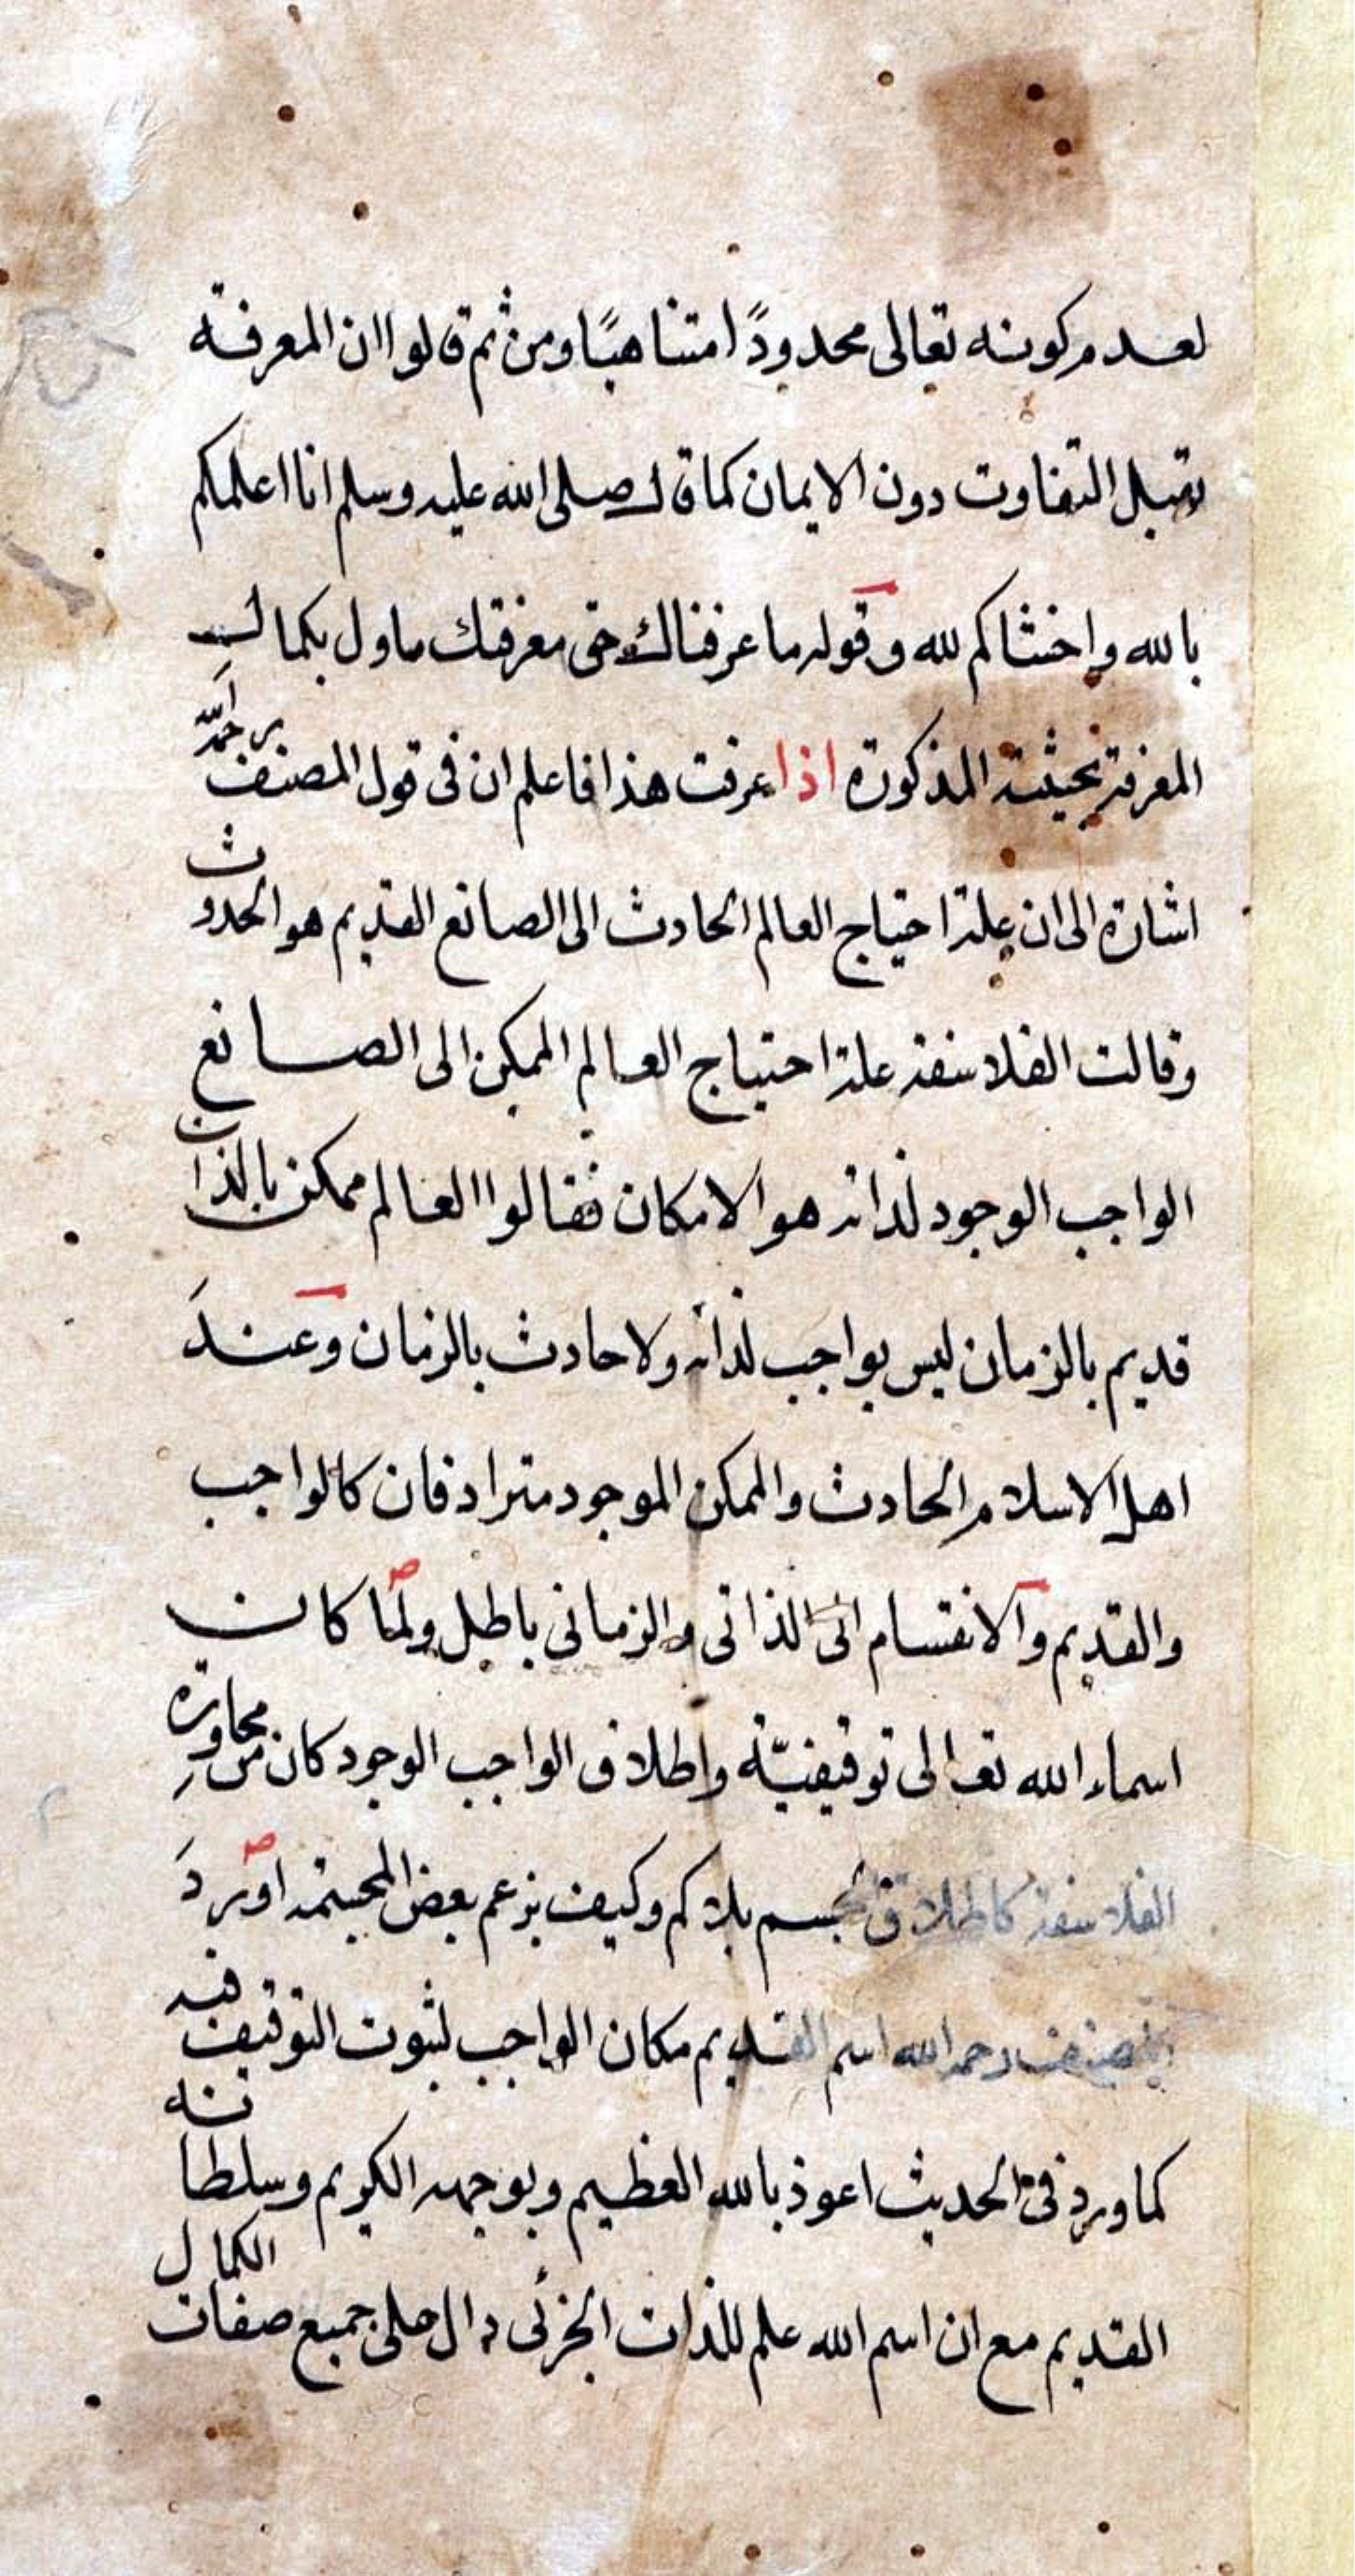 لعدم كونه تعالى محدودًا متناهيًا ومن ثم قالوا ان المعرفة
تقبل التفاوت دون الايمان كما قال صلى الله عليه وسلم انا اعلمكم
بالله واخشاكم لله وقوله ما عرفناك حق معرفتك ماول بكمال
المعرفة بحيثية المذكورة اذا عرفت هذا فاعلم ان في قول المصنف رحمه الله
اشارة الى ان علة احتياج العالم الحادث الى الصانع القديم هو الحدوث
وقالت الفلاسفة علة احتياج العالم الممكن الى الصانع
الواجب الوجود لذاته هو الامكان فقالوا العالم ممكن بالذات
قديم بالزمان ليس بواجب لذاته ولا حادث بالزمان وعند
اهل الاسلام الحادث والممكن الموجود مترادفان كالواجب
والقديم والانقسام الى الذاتي والزماني باطل ولما كان
اسماء الله تعالى توقيفيّة واطلاق الواجب الوجود كان من محاورة
الفلاسفة كاطلاق الجسم بلا كم وكيف بزعم بعض المجسمة اورد
المصنف رحمه الله اسم القديم مكان الواجب لثبوت التوقيف فيه
كما ورد في الحديث اعوذ بالله العظيم وبوجهه الكريم وسلطانه
القديم مع ان اسم الله علم للذات الجزئى دال على جميع صفات الكمال